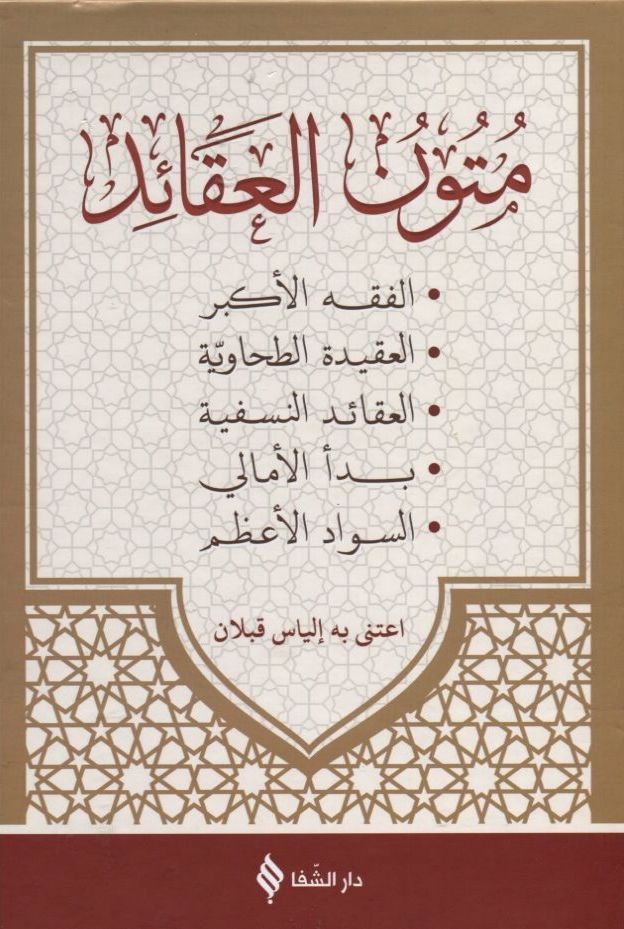 مُتُونُ العَقَائِدِ
• الفقه الأكبر
• العقيدة الطحاويّة
• العقائد النسفية
• بدأ الأمالي
• السواد الأعظم
اعتنى به إلياس قبلان
دار الشّفا